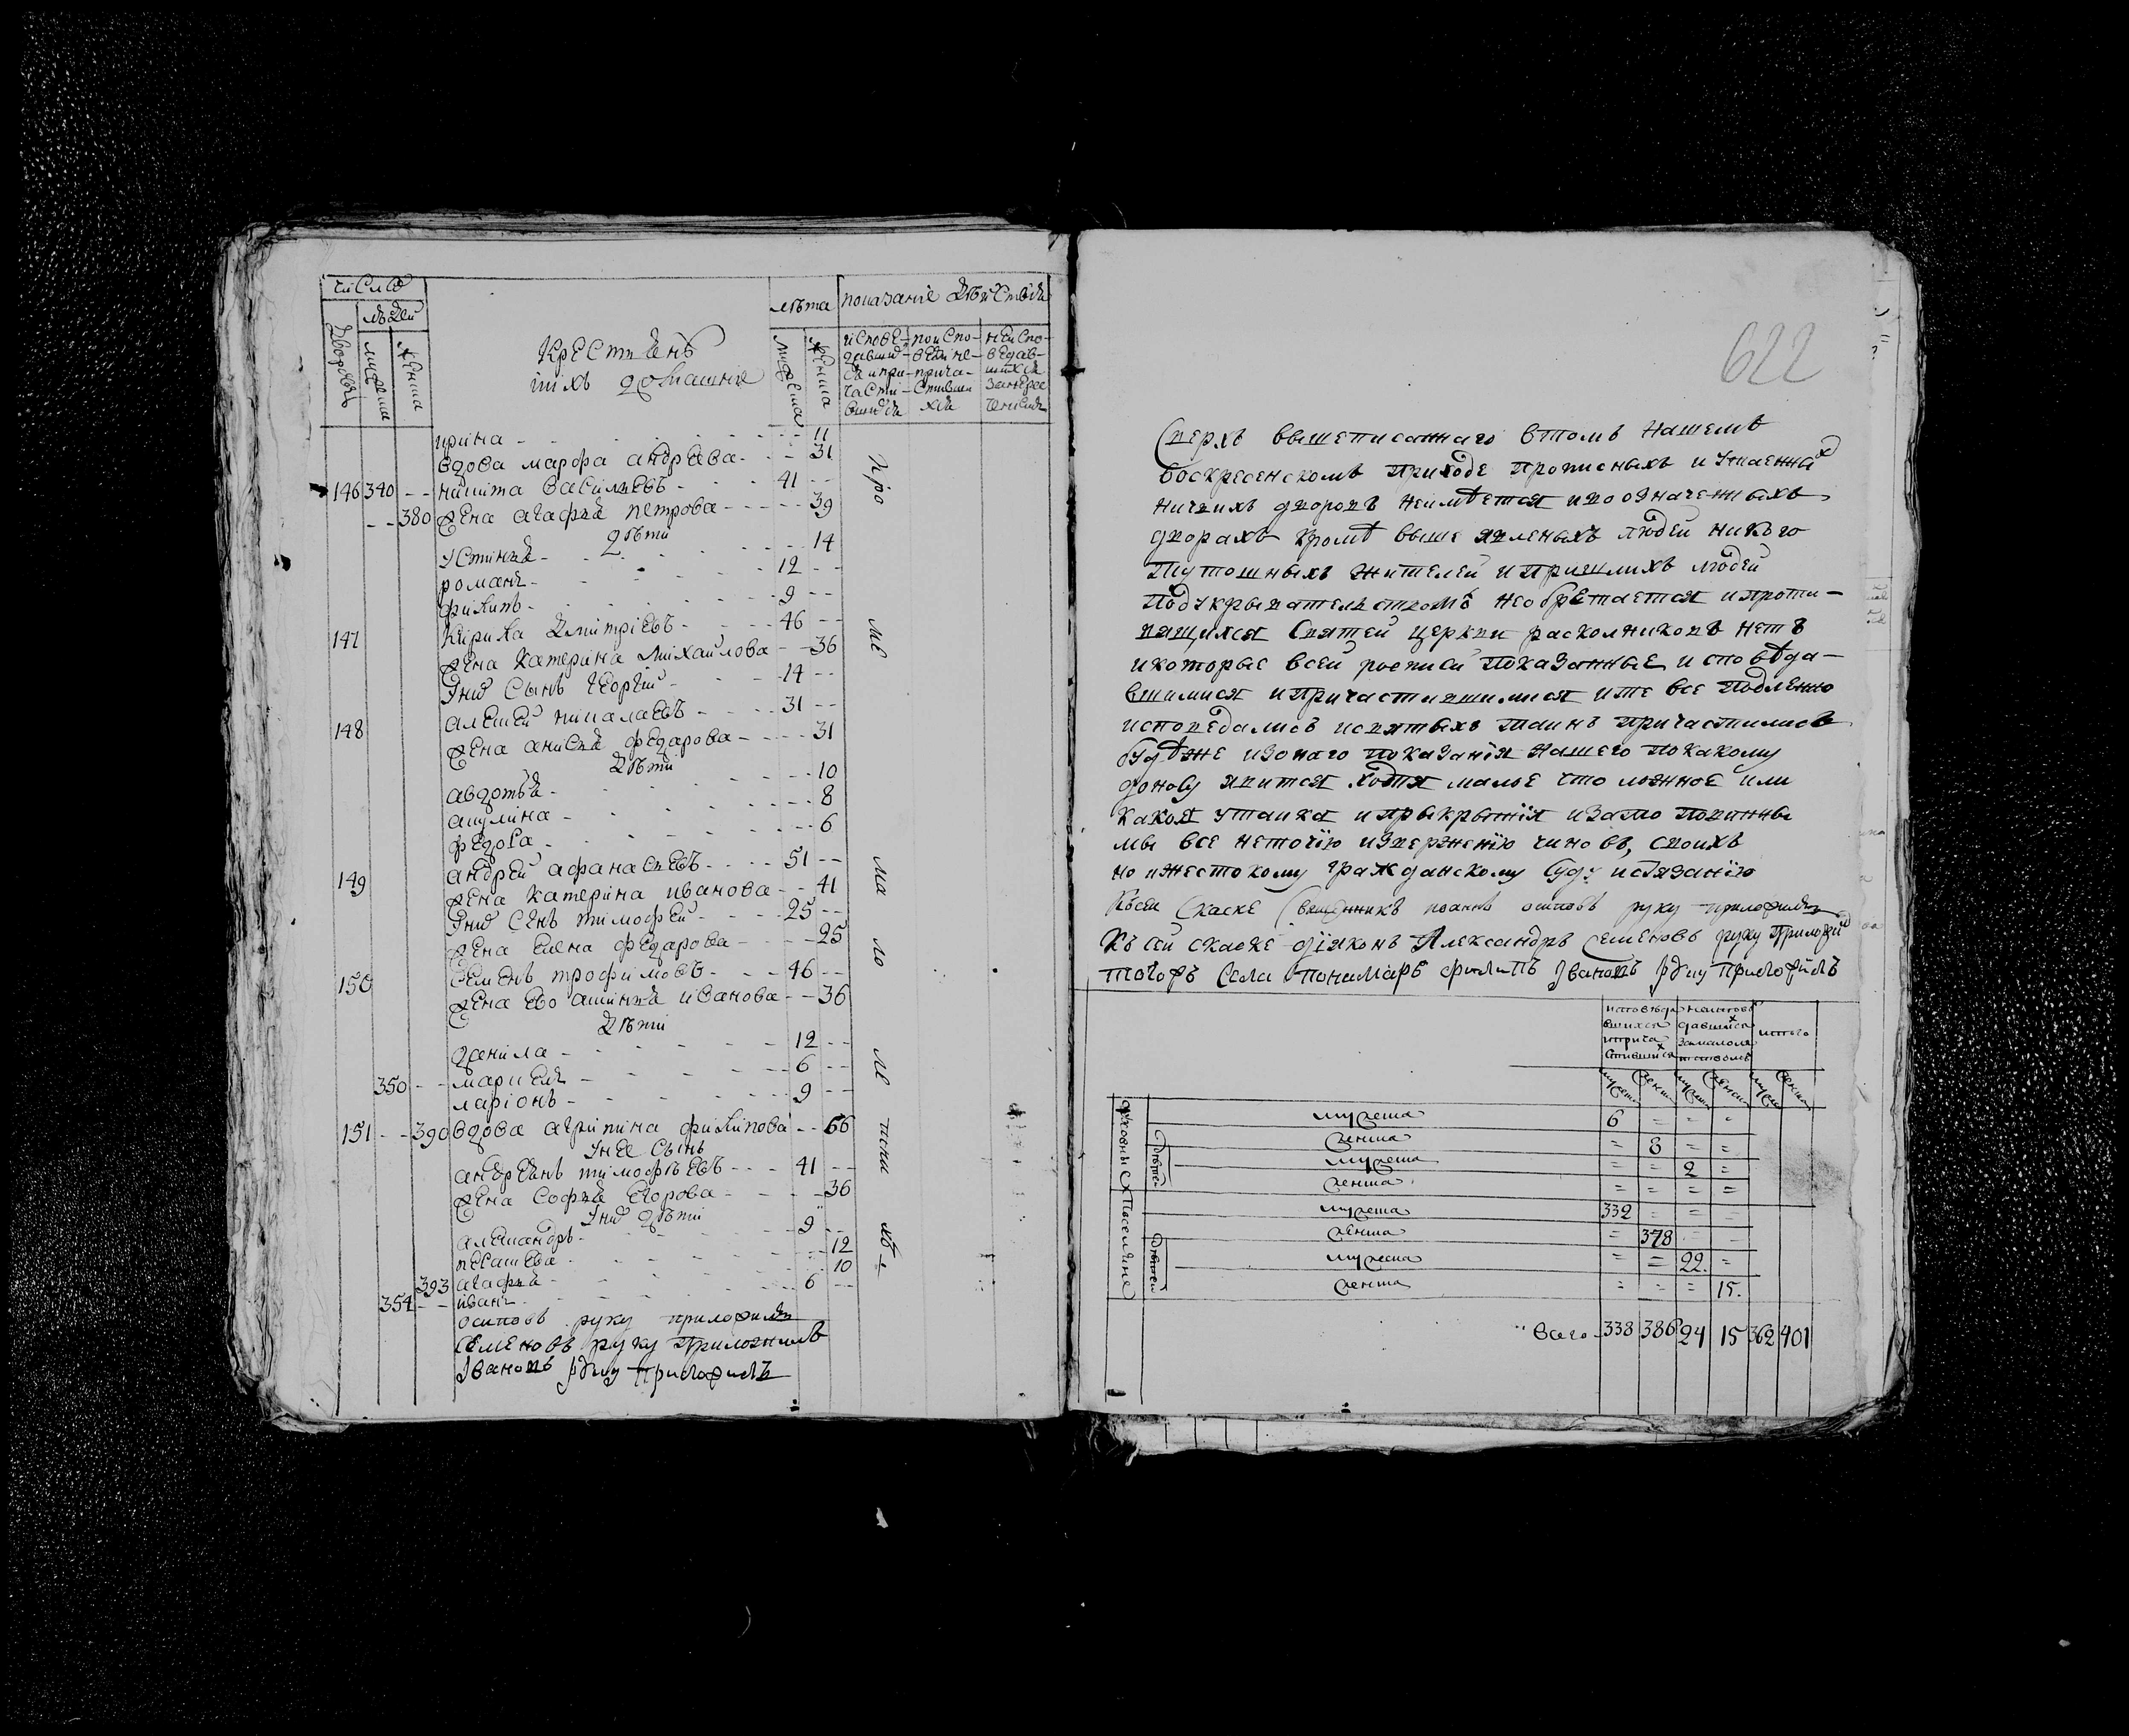 число
людей
дворовъ
мужеска
женска
крестьянъ
и ихъ домашние
лѣта
мужеска
женска
показание действия
исповедавшихся и причастившихся
исповедавшихся не причастившихся
не исповедавшихся
ирина - - 11
вдова марфа андрѣева - - 31
146 340 - - никита васильевъ - - 41 - -
- - 380 жена агафья петрова - - 39
дѣти
устинья - - 14
романъ - - 12 - -
филипъ - - 9 - -
147 кирила дмитриевъ - - 46 - -
жена катерина михайлова - - 36
у нихъ сынъ георгий - - 14 - -
148 алексей николаевъ - - 31 - -
жена анисья федарова - - 31
дѣти
авдотья - - 10
акулина - - 8
федора - - 6
149 андрей афанасьевъ - - 51 - -
жена катерина иванова - - 41
у нихъ сынъ тимофей - - 25 - -
жена елена федарова - - 25
150 семенъ трофимовъ - - 46 - -
жена ево акилина иванова - - 36
дѣти
данила - - 12 - -
350 - - - - 6 - -
ларионъ - - 9 - -
151 - - 390 вдова агрипина филипова - - 66
у нее сынъ
андреянъ тимофѣевъ - - 41 - -
жена софья егорова - - 36
у нихъ дѣти
александръ - - 9 - -
- - 12
393 агафья - - 10
354 - - иванъ - - 6 - -
осиповъ руку приложилъ
Семеновъ руку приложилъ
Ивановъ руку приложилъ
622
Сверхъ вышеписаннаго втомъ нашемъ
воскресенскомъ приходе прописныхъ и утаенных
ничьихъ дворовъ неимѣется ивоозначенныхъ
дворахъ кромѣ выше явленыхъ людей никого
тутошныхъ жителей и пришлихъ людей
подукрывателствомъ необретается ипроти-
вящихся святей церкви расколниковъ нетъ
икоторые всей росписи показанные исповѣда-
вшимися ипричастившимися ите все подленно
исповедались исвятыхъ таинъ причастились
будѣже изонаго показания нашего покакому
доносу явится хотя малое что ложное или
какая утаика иприкрытия изато повинны
мы все неточию извержению чиновъ, своихъ
но ижестокому гражданскому суду истязанию
Къ сей скаске священникъ иоаннъ осиповъ руку приложилъ
къ сей скаске диаконъ Александръ Семеновъ руку приложил
тогожъ села понамарь филипъ Ивановъ руку приложилъ
исповедавшихся и причастившихся
неисповедавшихся за малолетствомъ
итого
мужеска женска мужеска женска мужеска женска
духовныхъ мужеска 6 = = =
женска = 8 = =
детей мужеска = = 2 =
женска = = = =
Поселяне мужеска 332 = = =
женска = 378 = =
детей мужеска = = 22. =
женска = = = 15.
всего 338 386 24 15 362 401